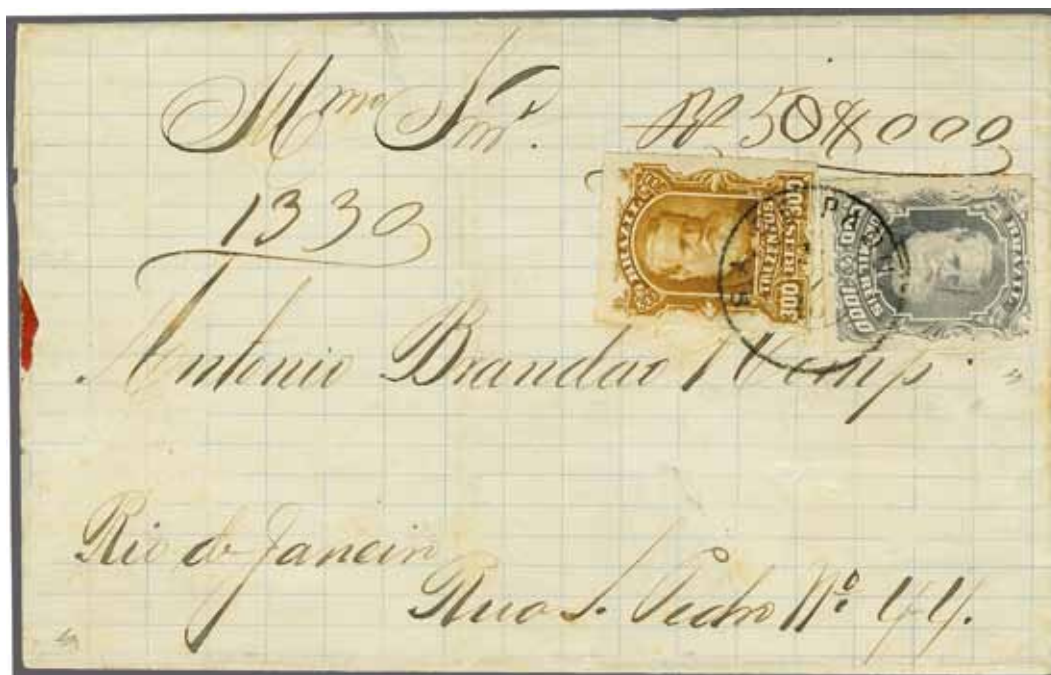 Illmo Snr.
Rs 50$000
1330
BRAZIL
300 REIS 300
TREZENTOS
BRAZIL
1000 REIS 1000
Antonio Brandao & Comp.
Rio de Janeiro
Rua S. Pedro No. 44.